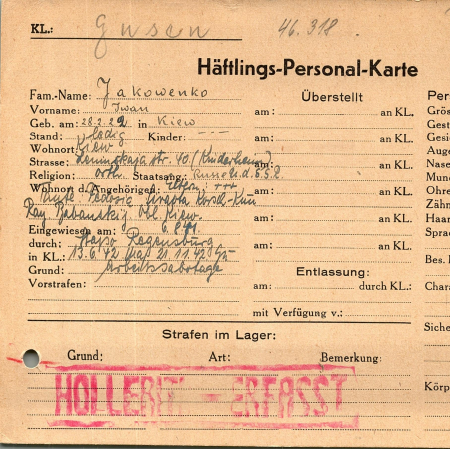 KL.: Gusen 46.318
Häftlings-Personal-Karte
Fam.-Name: Jakowenko
Vorname: Iwan
Geb. am: 28.2.22 in Kiew
Stand: ledig Kinder: ---
Wohnort: Kiew
Strasse: Leninskaja str. 40 (Kinderheim)
Religion: orth. Staatsang. Russe U.d.S.S.R.
Wohnort d. Angehörigen: Eltern: +++
Ray. Kiew.
Eingewiesen am:
durch: Stapo Regensburg
in KL.: 13.6.42 21.11.42
Grund: Arbeitssabotage
Vorstrafen:
Überstellt
am: an KL.
am: an KL.
am: an KL.
am: an KL.
am: an KL.
am: an KL.
Entlassung:
am: durch KL.:
mit Verfügung v.:
Strafen im Lager:
Grund: Art: Bemerkung:
HOLLERITH - ERFASST
Per
Grös
Gest
Gesi
Auge
Nase
Mun
Ohre
Zähn
Haar
Spra
Bes.
Chara
Siche
Körp